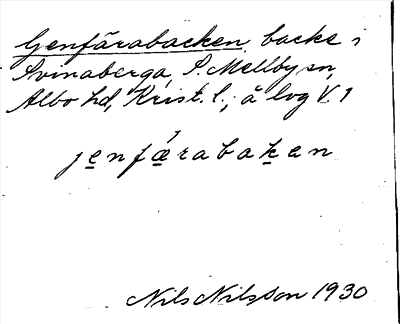 Genfärabacken, backe i
Svinaberga, S. Mellby sn,
Albo hd, Krist. l., å log V. 1
jenfǽrabaken
Nils Nilsson 1930